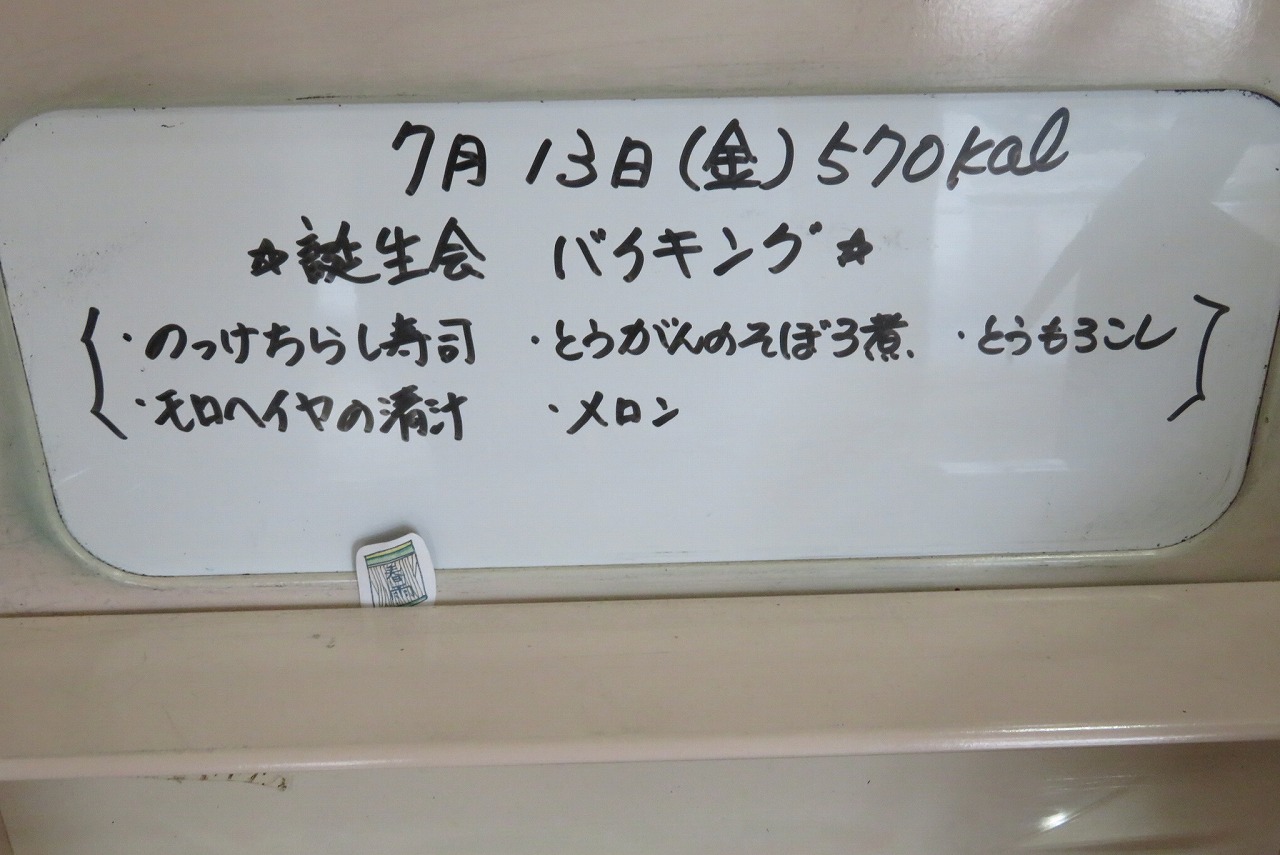 7月 13日(金) 570Kal
☆誕生会 バイキング☆
・のっけちらし寿司 ・とうがんのそぼろ煮 ・とうもろこし
・モロヘイヤの清汁 ・メロン
春雨